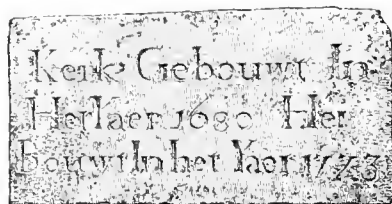 Kerk Gebouwt In
Het Iaer 1680 Her
bouwt In het Iaer 1773